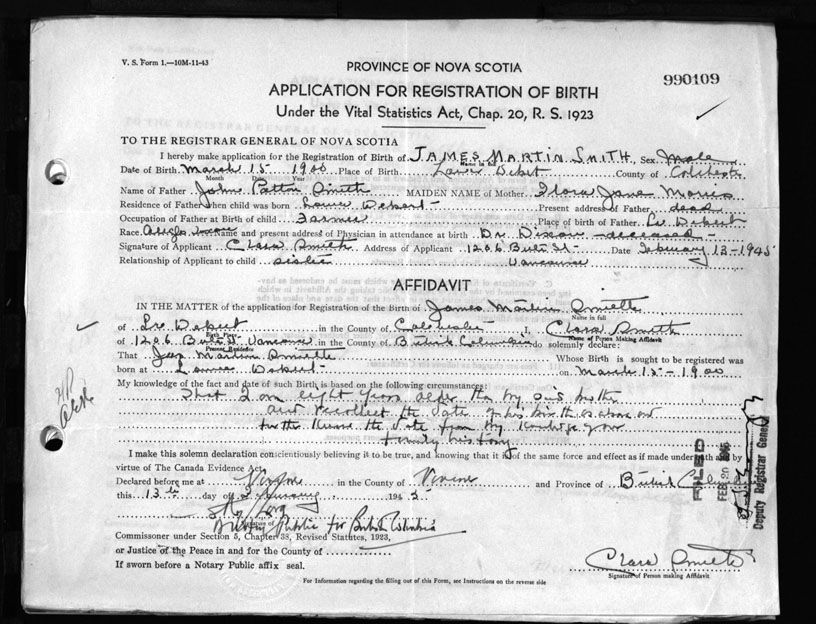 V. S. Form 1.—10M-11-43
PROVINCE OF NOVA SCOTIA
990109
APPLICATION FOR REGISTRATION OF BIRTH
Under the Vital Statistics Act, Chap. 20, R. S. 1923
TO THE REGISTRAR GENERAL OF NOVA SCOTIA
I hereby make application for the Registration of Birth of JAMES MARTIN SMITH, Sex Male
Name in full
Date of Birth March 15 1900 Place of Birth Lower Debert County of Colchester
Month Date Year
Name of Father John Smith MAIDEN NAME of Mother Flora Jane Morris
Residence of Father when child was born Lower Debert Present address of Father dead
Occupation of Father at Birth of child Farmer Place of birth of Father Lr Debert
Race Anglo Saxon Name and present address of Physician in attendance at birth Dr. Dixon - deceased -
Signature of Applicant Clara Smith Address of Applicant 1206 Bute St - Date February 13 - 1945
Relationship of Applicant to child sister Vancouver
AFFIDAVIT
IN THE MATTER of the application for Registration of the Birth of James Martin Smith
Name in full
of Lr Debert in the County of Colchester I, Clara Smith
Birth Place Name of Person Making Affidavit
of 1206 Bute St Vancouver in the County of British Columbia do solemnly declare:
Present Residence
That Jas Martin Smith Whose Birth is sought to be registered was
born at Lower Debert on March 15 - 1900
My knowledge of the fact and date of such Birth is based on the following circumstances:
That I am eight years older than my said brother
and recollect the date of his birth as above and
further know the date from my knowledge of our
family history
I make this solemn declaration conscientiously believing it to be true, and knowing that it is of the same force and effect as if made under oath and by
virtue of The Canada Evidence Act.
Declared before me at in the County of and Province of British Columbia
this 13th day of February 1945
Notary Public for British Columbia
Signature of
Commissioner under Section 5, Chapter 38, Revised Statutes, 1923,
or Justice of the Peace in and for the County of
If sworn before a Notary Public affix seal.
Clara Smith
Signature of Person making Affidavit
For Information regarding the filling out of this Form, see Instructions on the reverse side
FILED
FEB 20 1945
Deputy Registrar General